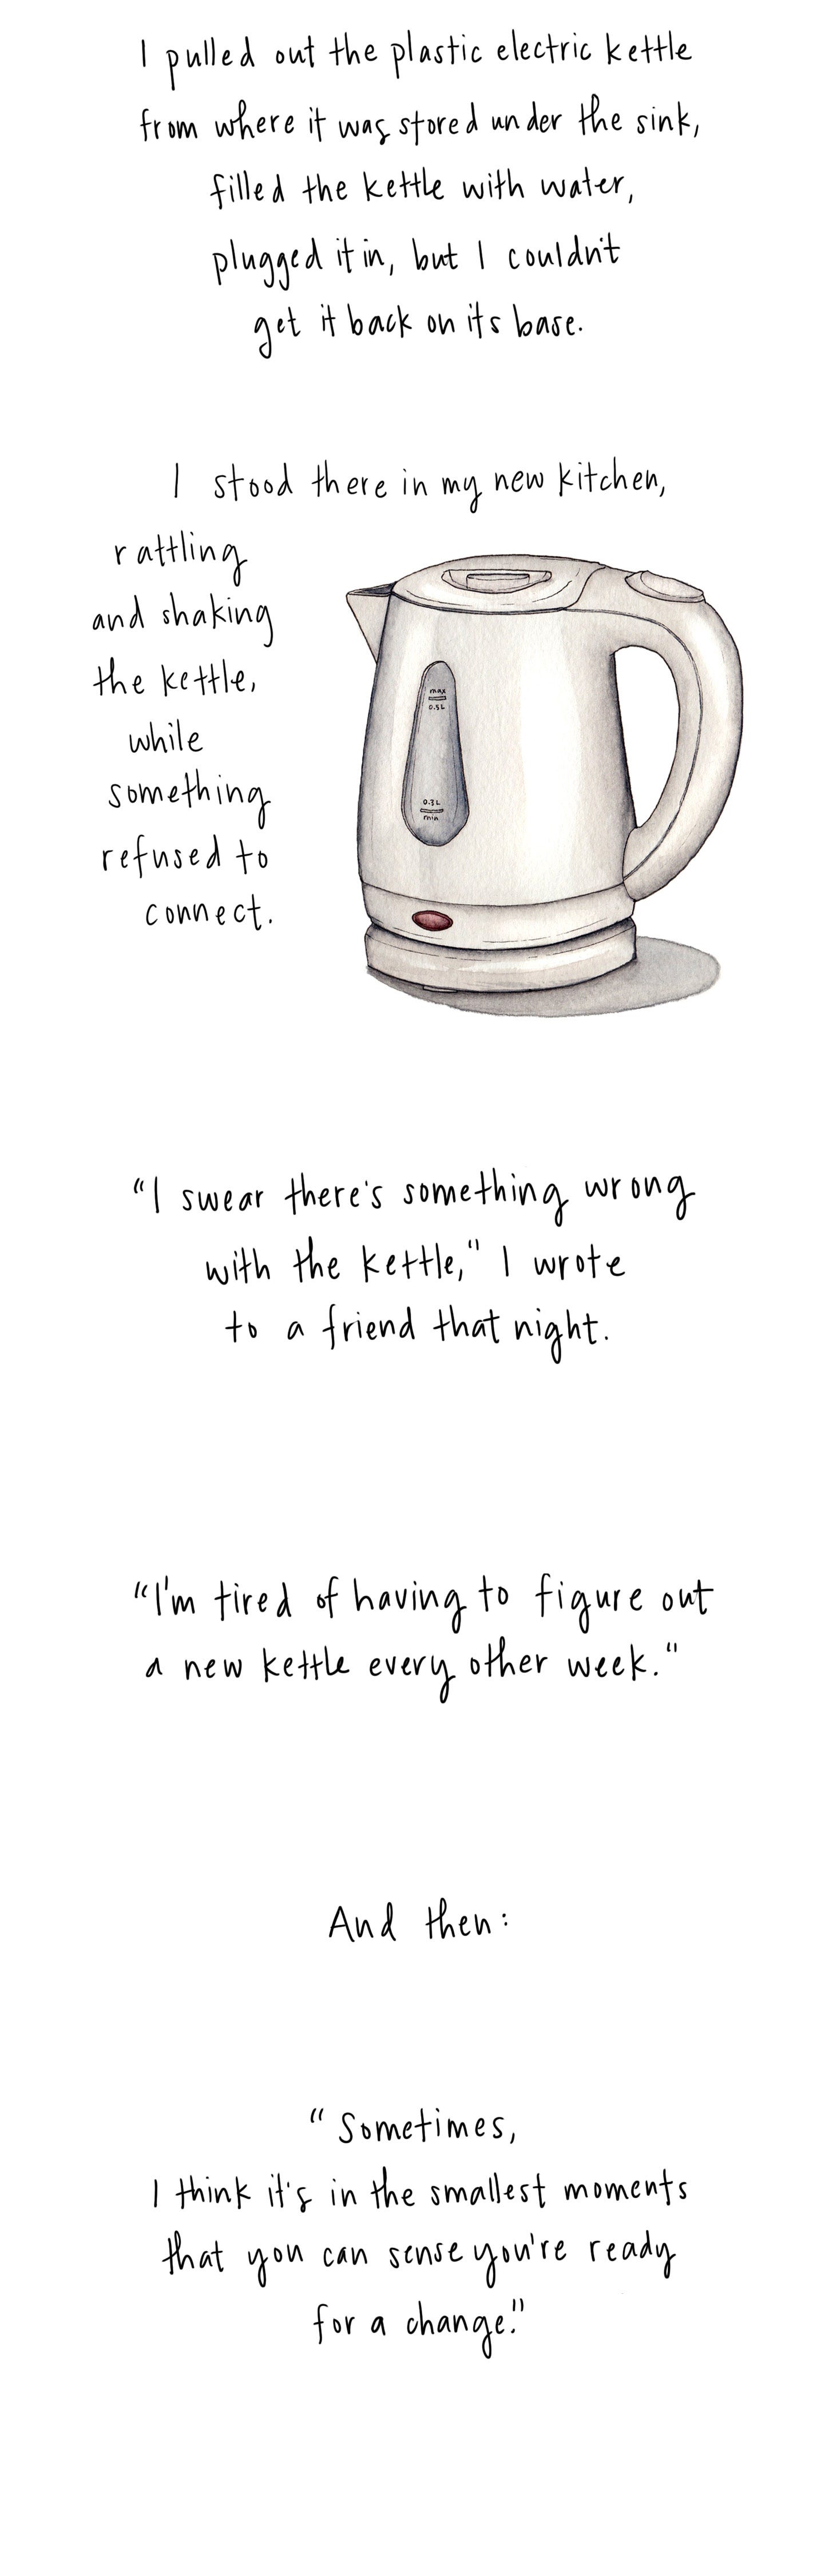 I pulled out the plastic electric kettle
from where it was stored under the sink,
filled the kettle with water,
plugged it in, but I couldn't
get it back on its base.
I stood there in my new kitchen,
rattling
and shaking
the kettle,
while
something
refused to
connect.
max
0.5L
0.3L
min
"I swear there's something wrong
with the kettle," I wrote
to a friend that night.
"I'm tired of having to figure out
a new kettle every other week."
And then:
"Sometimes,
I think it's in the smallest moments
that you can sense you're ready
for a change."